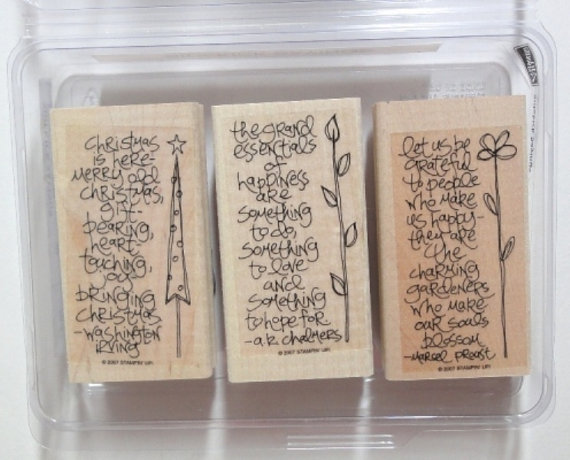 christmas
is here-
merry old
christmas,
gift-
bearing,
heart-
touching,
joy
bringing
christmas
-washington
irving
© 2007 STAMPIN' UP!
the grand
essentials
of
happiness
are
something
to do,
something
to love
and
something
to hope for
-a.k. chalmers
© 2007 STAMPIN' UP!
let us be
grateful
to people
who make
us happy-
they are
the
charming
gardeners
who make
our souls
blossom
-marcel proust
© 2007 STAMPIN' UP!